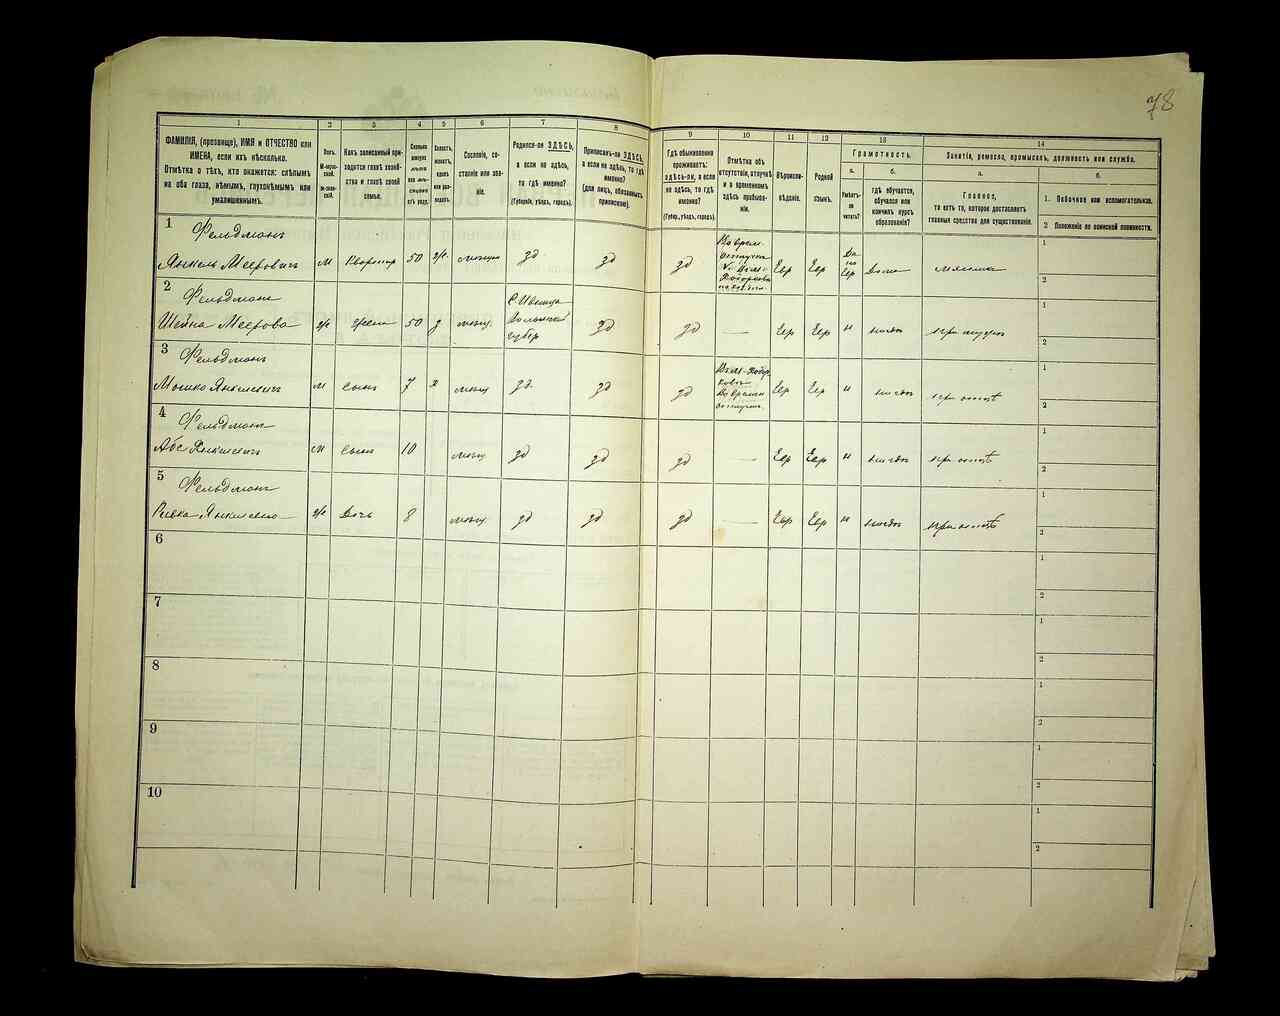 78
1 2 3 4 5 6 7 8 9 10 11 12 13 14
ФАМИЛІЯ, (прозвище), ИМЯ и ОТЧЕСТВО или
ИМЕНА, если ихъ нѣсколько.
Отмѣтка о тѣхъ, кто окажется: слѣпымъ
на оба глаза, нѣмымъ, глухонѣмымъ или
умалишеннымъ.
Полъ.
М-мужской.
Ж-женскій.
Какъ записанный приходится главѣ хозяйства и главѣ своей
семьи.
Сколько
минуло
лѣтъ
или мѣсяцевъ
отъ роду.
Холостъ,
женатъ,
вдовъ
или разведенъ.
Сословіе, состояніе или званіе.
Родился-ли ЗДѢСЬ,
а если не здѣсь,
то гдѣ именно?
(Губернія, уѣздъ, городъ).
Приписанъ-ли ЗДѢСЬ,
а если не здѣсь, то гдѣ
именно?
(для лицъ, обязанныхъ
припискою).
Гдѣ обыкновенно
проживаетъ:
здѣсь-ли, а если
не здѣсь, то гдѣ
именно?
(Губер., уѣздъ, городъ).
Отмѣтка объ
отсутствіи, отлучкѣ
и о временномъ
здѣсь пребываніи.
Вѣроисповѣданіе.
Родной
языкъ.
Грамотность.
а. б.
Умѣетъ-ли
читать?
гдѣ обучается,
обучался или
кончилъ курсъ
образованія?
Занятіе, ремесло, промыселъ, должность или служба.
а. б.
Главное,
то есть то, которое доставляетъ
главныя средства для существованія.
1. Побочное или вспомогательное.
2 Положеніе по воинской повинности.
1 Фельдманъ
Янкель Мееровичъ м 50 зд зд зд Евр Евр Да Дома
1
2
2 Фельдманъ
Шейна Меерова ж жена 50 мѣщ. губер зд зд — Евр Евр
1
2
3 Фельдманъ
Мошко Янкелевичъ м сынъ 7 х мѣщ зд. зд зд Евр Евр
1
2
4 Фельдманъ
Янкелевичъ м сынъ 10 мѣщ зд зд зд — Евр Евр при отцѣ
1
2
5 Фельдманъ
Ривка Янкелевна ж Дочь 8 мѣщ. зд зд зд — Евр Евр при отцѣ
1
2
6
1
2
7
1
2
8
1
2
9
1
2
10
1
2